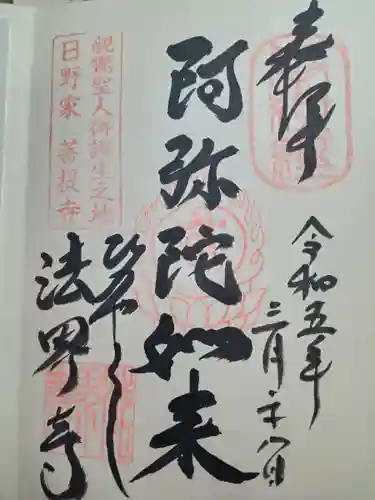 奉拝
令和五年
三月二十八日
阿弥陀如来
法界寺
親鸞聖人御誕生之地
日野家 菩提寺